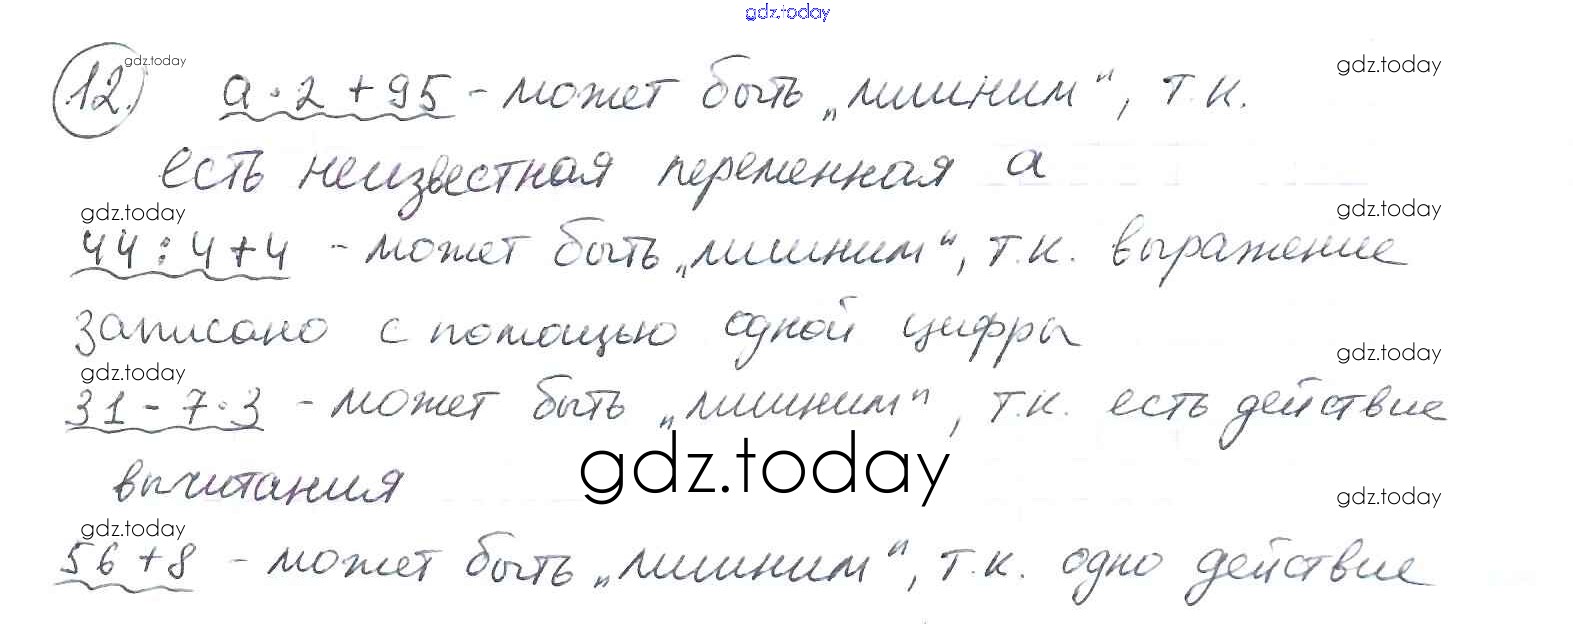 gdz.today
gdz.today
12. а · 2 + 95 - может быть „лишним", т.к. gdz.today
есть неизвестная переменная а
gdz.today gdz.today
44 : 4 + 4 - может быть „лишним", т.к. выражение
записано с помощью одной цифры
gdz.today gdz.today
31 - 7 · 3 - может быть „лишним", т.к. есть действие
gdz.today
вычитания gdz.today
gdz.today
56 + 8 - может быть „лишним", т.к. одно действие